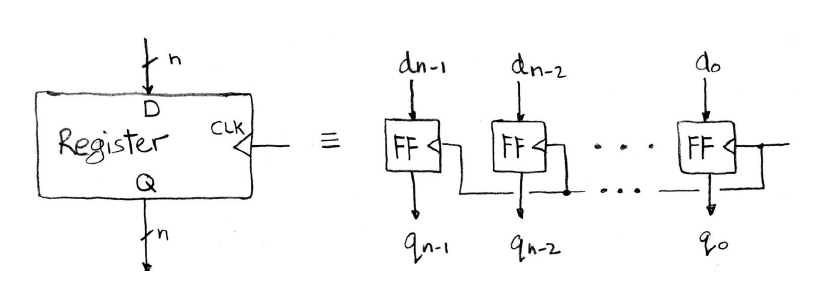 n
D
Register CLK
Q
n
≡
dn-1 dn-2 d0
FF FF . . . . FF
. . .
qn-1 qn-2 q0